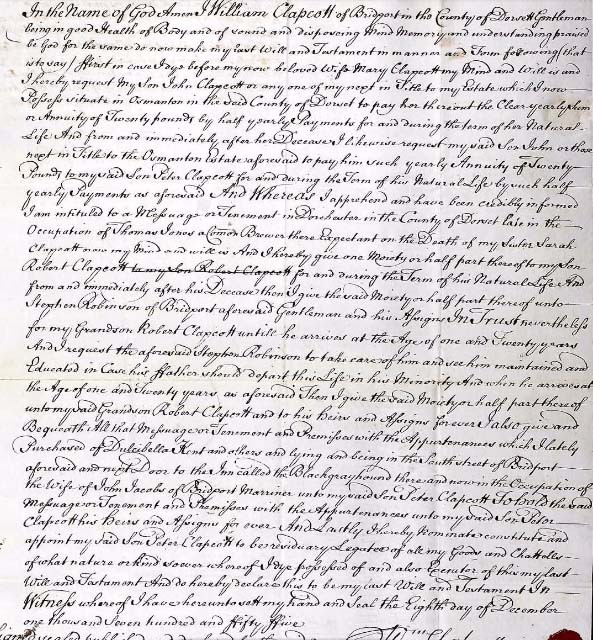 In the Name of God Amen I William Clapcott of Bridport in the County of Dorsett Gentleman
being in good Health of Body and of sound and disposing Mind Memory and understanding praised
be God for the same do now make my last Will and Testament in manner and Form following (that
is to say) ffirst in case I dye before my now beloved Wife Mary Clapcott my Mind and Will is and
I hereby request My Son John Clapcott or any one of my next in Title to my Estate which I now
Possess situate in Osmanton in the said County of Dorset to pay her thereout the Clear yearly Sum
or Annuity of Twenty pounds by half yearly Payments for and during the term of her Natural
Life And from and immediately after her Decease I likewise request my said Son John or those
next in Title to the Osmanton Estate aforesaid to pay him such yearly Annuity of Twenty
Pounds to my said Son Peter Clapcott for and during the Term of his Natural Life by such half
yearly Payments as aforesaid And Whereas I apprehend and have been credibly informed
I am intituled to a Messuage or Tenement in Dorchester in the County of Dorset late in the
Occupation of Thomas Jones a Comon Brewer there Expectant on the Death of my Sister Sarah
Clapcott now my Mind and will is And I hereby give one Moiety or half part thereof to my Son
Robert Clapcott to my Son Robert Clapcott for and during the Term of his Natural Life And
from and immediately after his Decease then I give the said Moiety or half part thereof unto
Stephen Robinson of Bridport aforesaid Gentleman and his Assigns In Trust nevertheless
for my Grandson Robert Clapcott untill he arrives at the Age of one and Twenty years
And I request the aforesaid Stephen Robinson to take care of him and see him maintained and
Educated in Case his ffather should depart this Life in his Minority And when he arrives at
the Age of one and Twenty years as aforesaid Then I give the said Moiety or half part thereof
unto my said Grandson Robert Clapcott and to his Heirs and Assigns for ever I also give and
Bequeath All that Messuage or Tenement and Premisses with the Appurtenances which I lately
Purchased of Dulcibella Kent and others and lying and being in the South street of Bridport
aforesaid and next Door to the Inn called the Blackgrayhound there and now in the Occupation of
the Wife of John Jacobs of Bridport Marriner unto my said Son Peter Clapcott To hold the said
Messuage or Tenement and Premisses with the Appurtenances unto my said Son Peter
Clapcott his Heirs and Assigns for ever And Lastly I hereby Nominate constitute and
appoint my said Son Peter Clapcott to be residuary Legatee of all my Goods and Chattells
of what nature or kind soever whereof I dye possessed of and also Executor of this my last
Will and Testament And do hereby declare this to be my last Will and Testament In
Witness whereof I have hereunto sett my hand and Seal the Eighth day of December
one thousand Seven hundred and ffifty ffive
Wm Clapcott